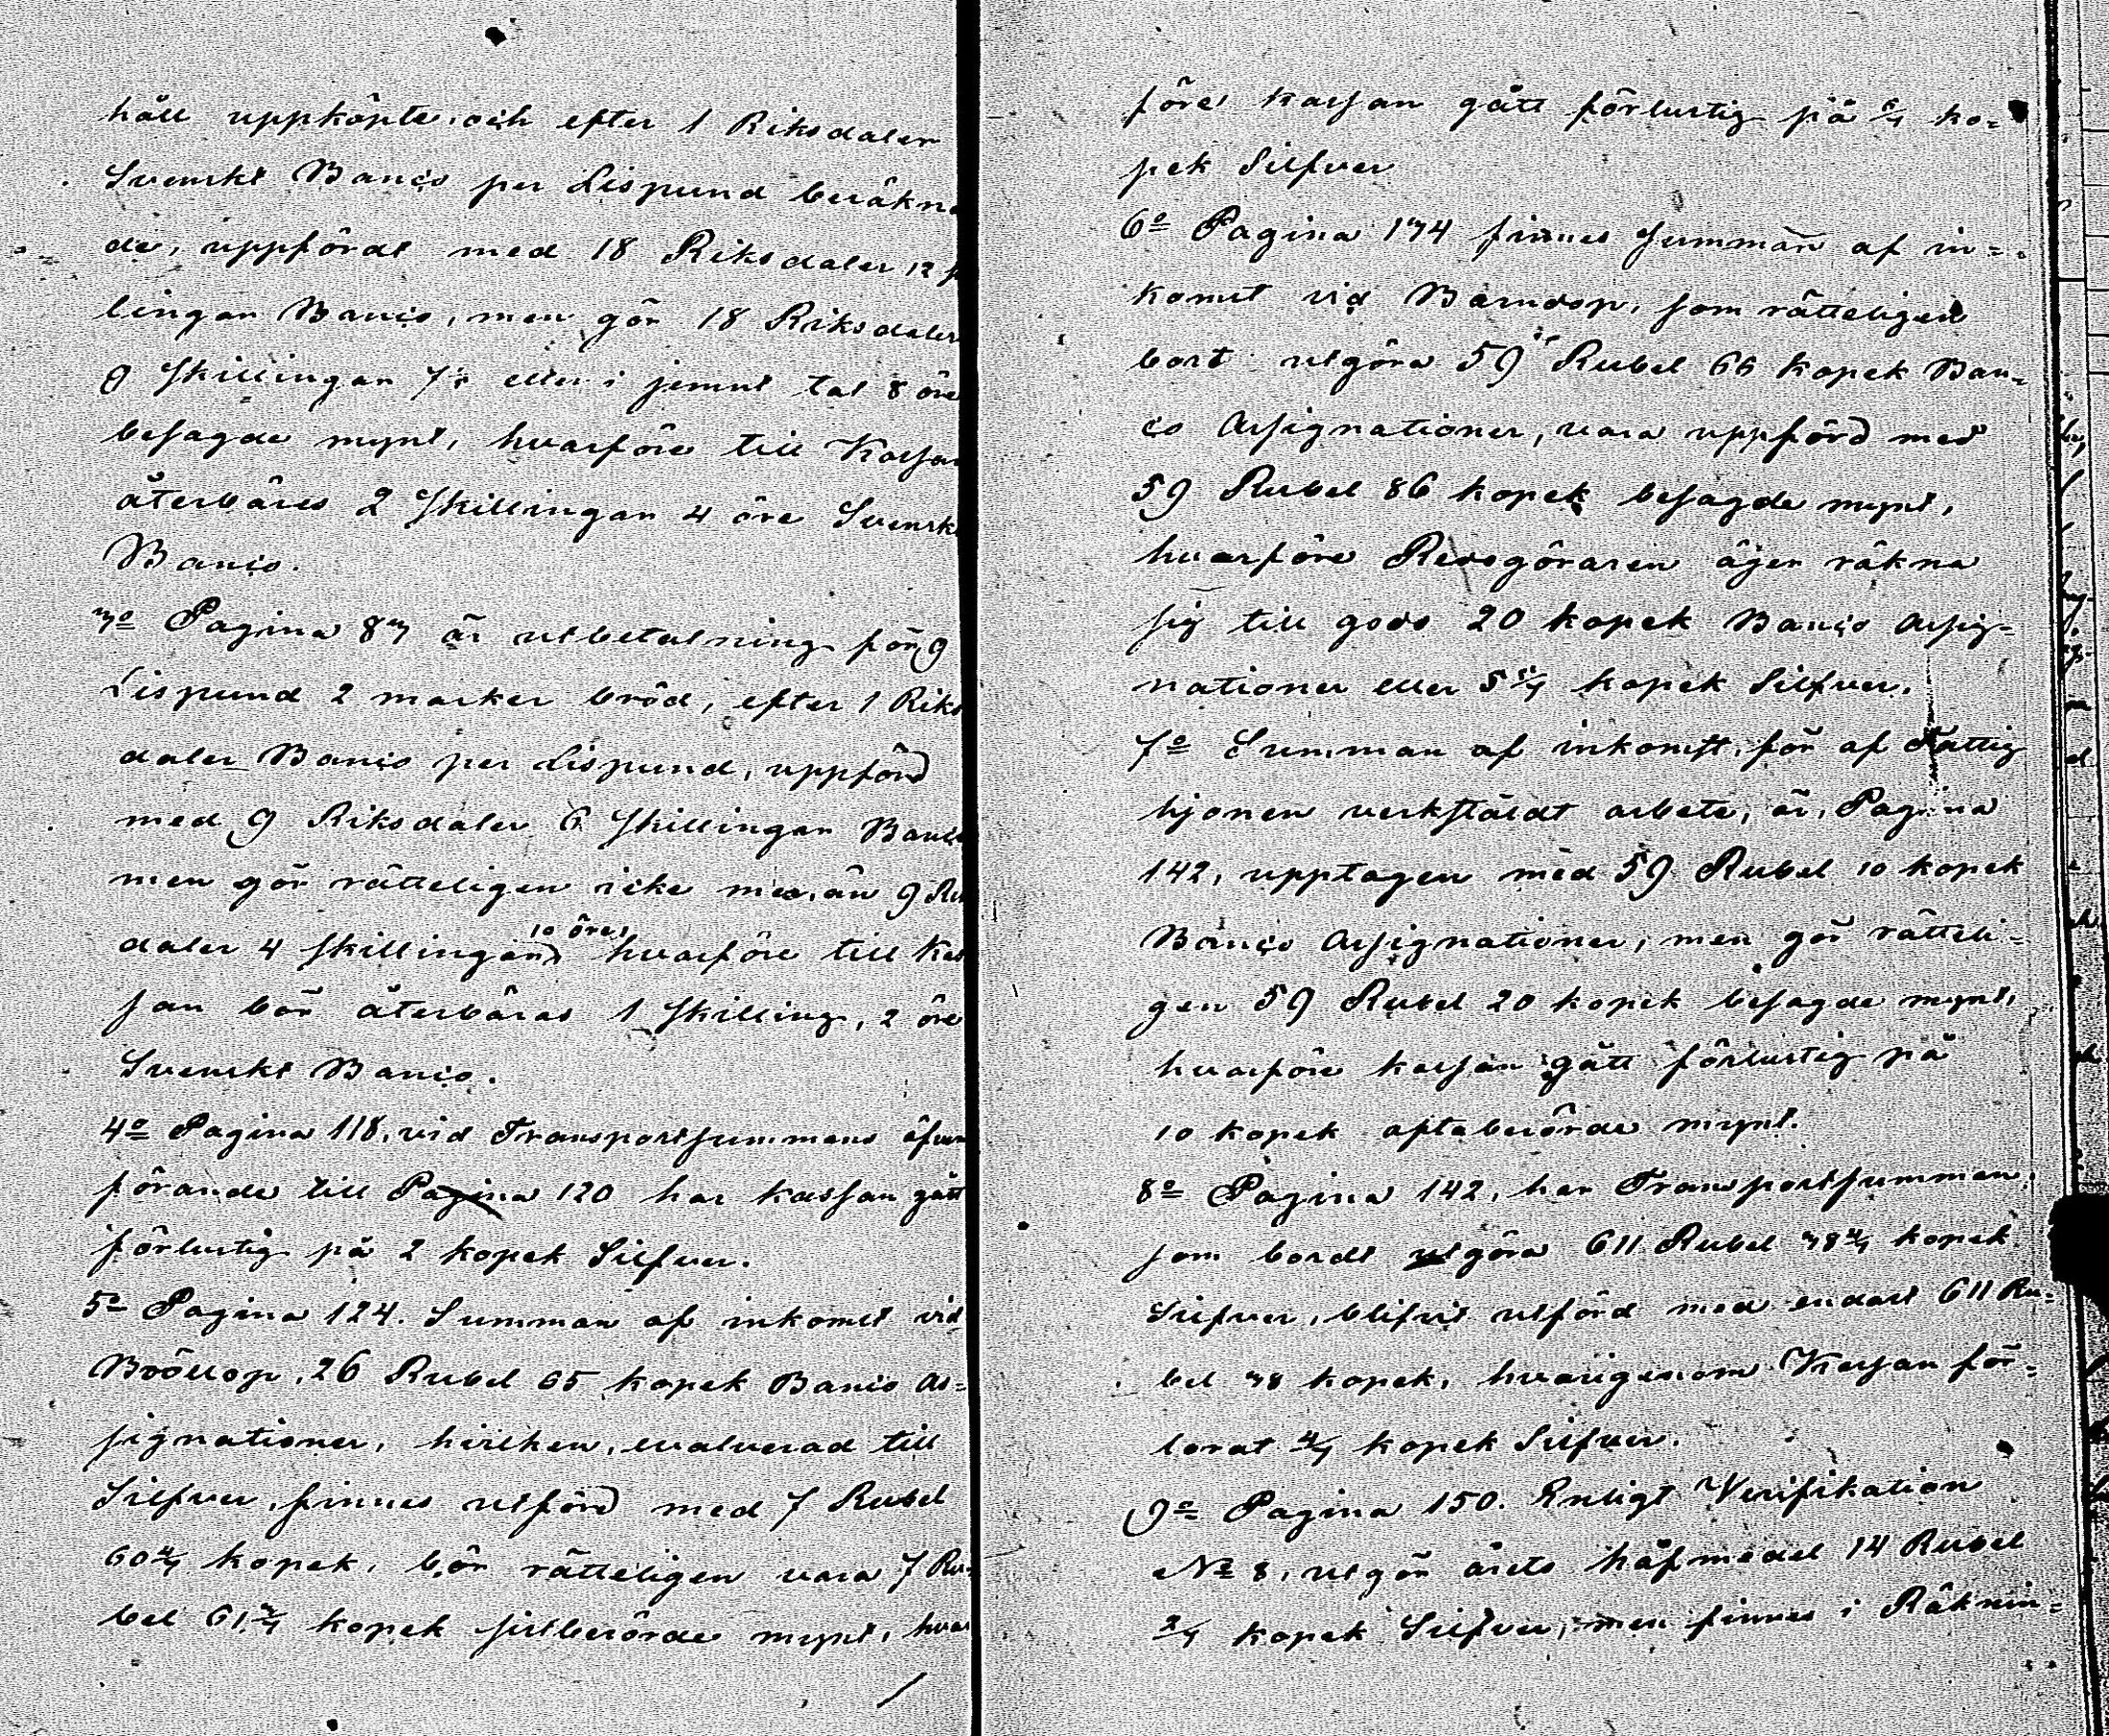 håll uppköpte och efter 1 Riksdaler
Svenskt Banco per Lispund beräkna
de, uppfördt med 18 Riksdaler 12
lingar Banco, men gör 18 Riksdaler
9 skillingar eller i jemnt tal 8 öre
besagde mynt, hvarföre till Kassan
återbäres 2 skillingar 4 öre Svenskt
Banco.
3o Pagina 83 är utbetalning för 9
Lispund 2 marker bröd, efter 1 Riks
daler Banco per Lispund, uppförd
med 9 Riksdaler 6 skillingar Banco
men gör rätteligen icke mer än 9 Rik
daler 4 skillingar 10 öre, hvarföre till Kas
san bör återbäras 1 skilling, 2 öre
Svenskt Banco.
4o Pagina 118, vid Transportsummans öfver
förande till Pagina 120 har kassan gått
förlustig på 2 kopek Silfver.
5o Pagina 124. Summan af inkomst vid
Bröllop, 26 Rubel 65 kopek Banco As=
signationer, hvilken, evalverad till
Silfver, finnes utförd med 7 Rubel
60 4/7 kopek, bör rätteligen vara 7 Ru=
bel 61 3/7 kopek sistberörde mynt, hvar
före kassan gått förlustig på 6/7 ko=
pek Silfver
6o Pagina 134 finnes summan af in=
komst vid Barndop, som rätteligen
bort utgöra 59 Rubel 66 kopek Ban=
co Assignationer, vara uppförd med
59 Rubel 86 kopek besagde mynt,
hvarföre Redogöraren äger räkna
sig till godo 20 kopek Banco Assig=
nationer eller 5 5/7 kopek Silfver.
7o Summan af inkomst, för af Fattig
hjonen verkstäldt arbete, är, Pagina
142, upptagen med 59 Rubel 10 kopek
Banco Assignationer, men gör rätteli=
gen 59 Rubel 20 kopek besagde mynt,
hvarföre kassan gått förlustig på
10 kopek oftaberörde mynt.
8o Pagina 142, har Transportsumman,
som bordt utgöra 611 Rubel 38 4/7 kopek
Silfver, blifvit utförd med endast 611 Ru=
bel 38 kopek, hvarigenom Kassan för=
lorat 4/7 kopek Silfver.
9o Pagina 150. Enligt Verifikation
No 8, utgör årets håfmedel 14 Rubel
2/7 kopek Silfver, men finnes i Räknin=